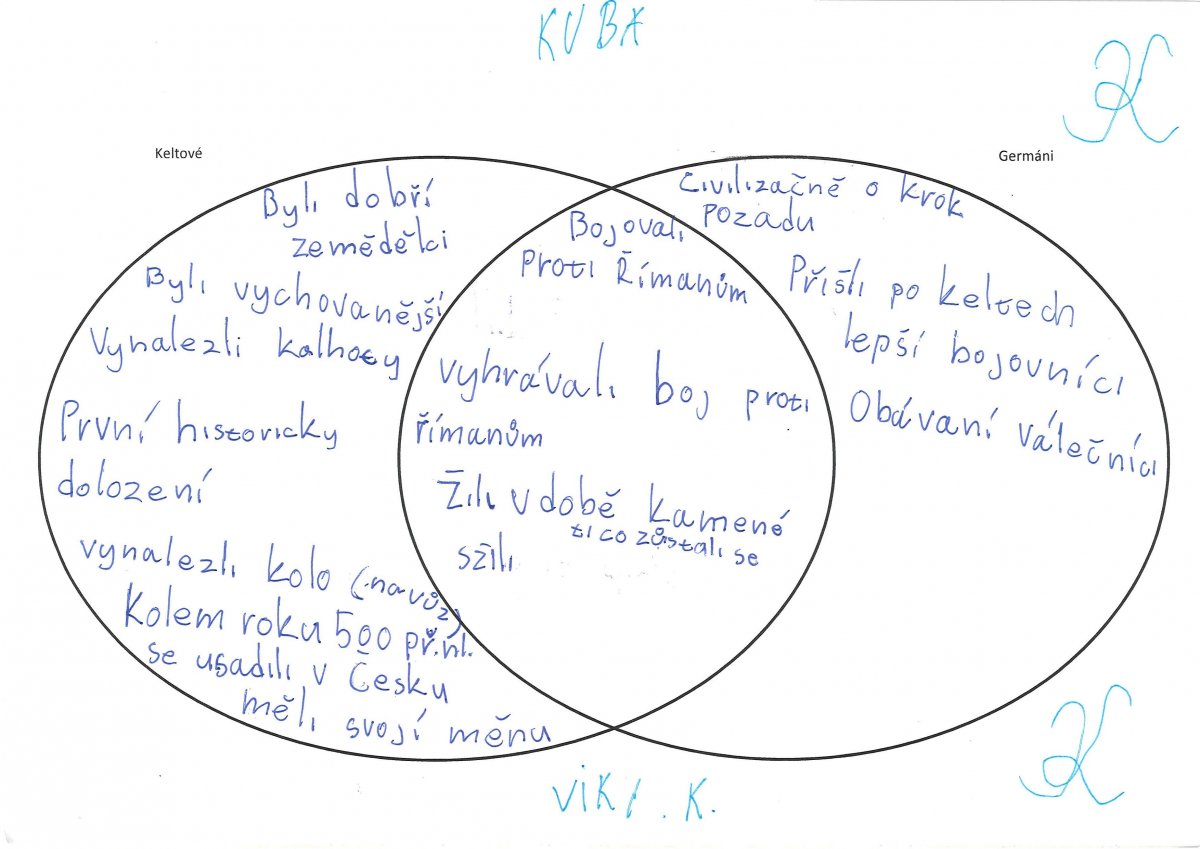 KUBA
K
Keltové
Germáni
Byli dobří
zemědělci
Byli vychovanější
Vynalezli kalhoty
První historicky
dolození
vynalezli kolo (na vůz)
Kolem roku 500 př.nl.
se usadili v Česku
měli svojí měnu
Bojovali
proti Římanům
vyhrávali boj proti
římanům
Žili v době kamené
ti co zůstali se
szili
Civilizačně o krok
pozadu
Příšli po keltech
lepší bojovníci
Obávaní válečníci
VIKI.K.
K